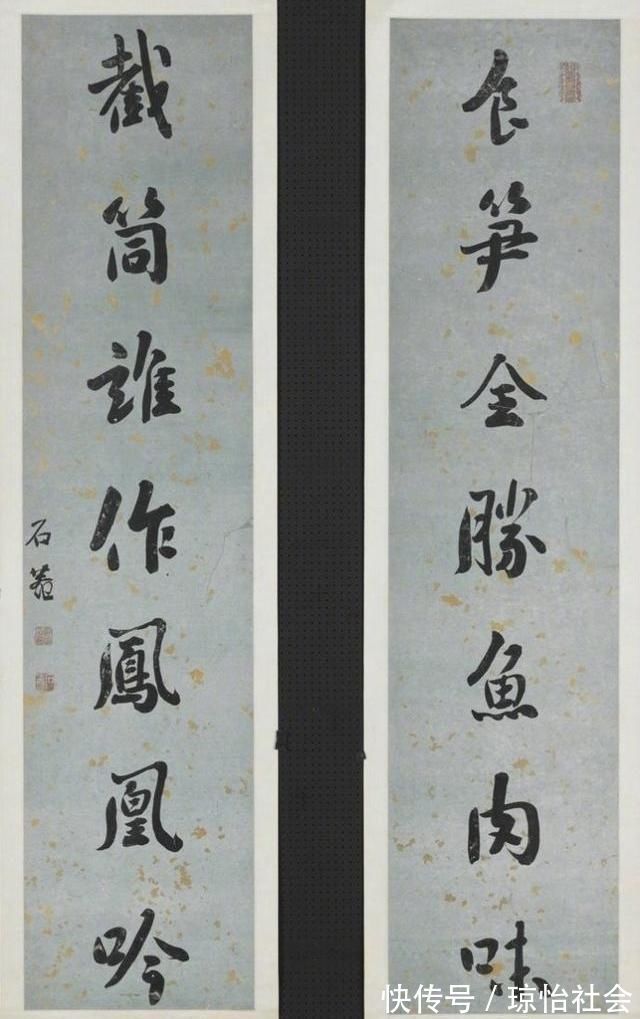 食笋全勝魚肉味
截筒誰作鳳凰吟
石菴
快传号／琼怡社会